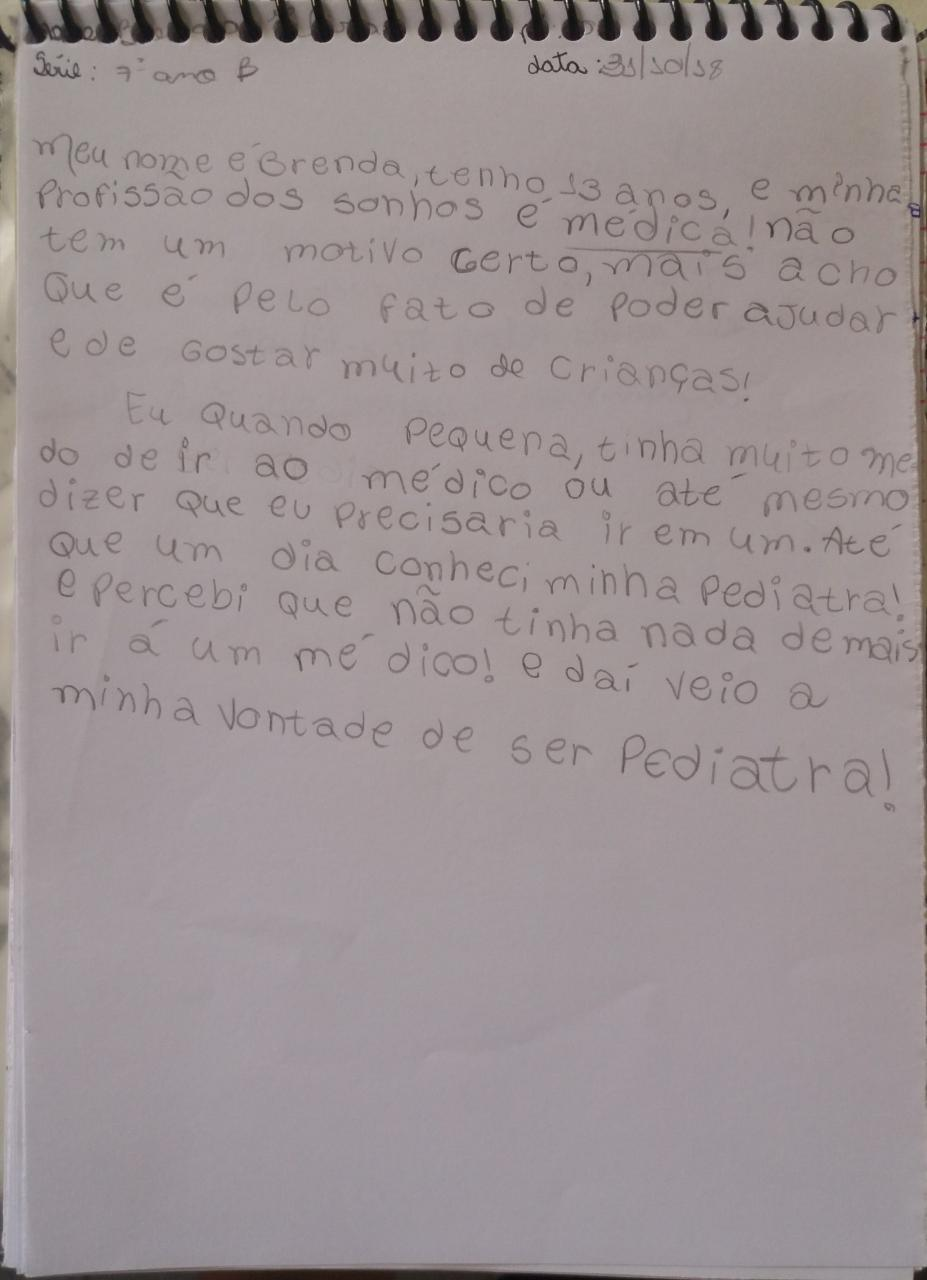 Série: 7º ano B data: 31/10/18
Meu nome é Brenda, tenho 13 anos, e minha
Profissão dos sonhos é médica! não
tem um motivo certo, mais acho
Que é pelo fato de poder ajudar
e de gostar muito de crianças!
Eu Quando pequena, tinha muito me
do de ir ao médico ou até mesmo
dizer que eu precisaria ir em um. Até
que um dia conheci minha pediatra!
e percebi que não tinha nada demais
ir á um médico! e daí veio a
minha vontade de ser Pediatra!